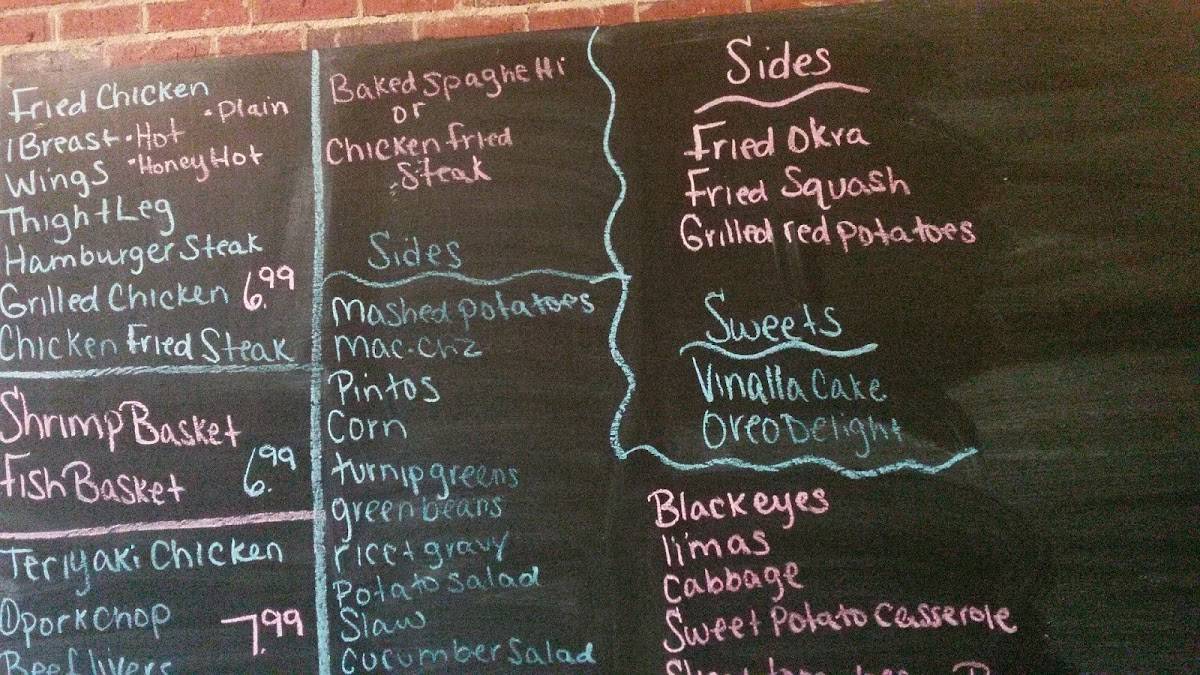 Fried Chicken
• Plain
1 Breast • Hot
Wings • Honey Hot
Thigh + Leg
Hamburger Steak
Grilled Chicken 6.99
Chicken Fried Steak
Shrimp Basket
Fish Basket 6.99
Teriyaki Chicken
① pork chop 7.99
Beef livers
Baked Spaghetti
or
Chicken fried
Steak
Sides
Mashed potatoes
Mac-chz
Pintos
Corn
turnip greens
green beans
rice + gravy
Potato salad
Slaw
cucumber salad
Sides
Fried Okra
Fried Squash
Grilled red potatoes
Sweets
Vinalla Cake
Oreo Delight
Black eyes
limas
cabbage
Sweet Potato Casserole